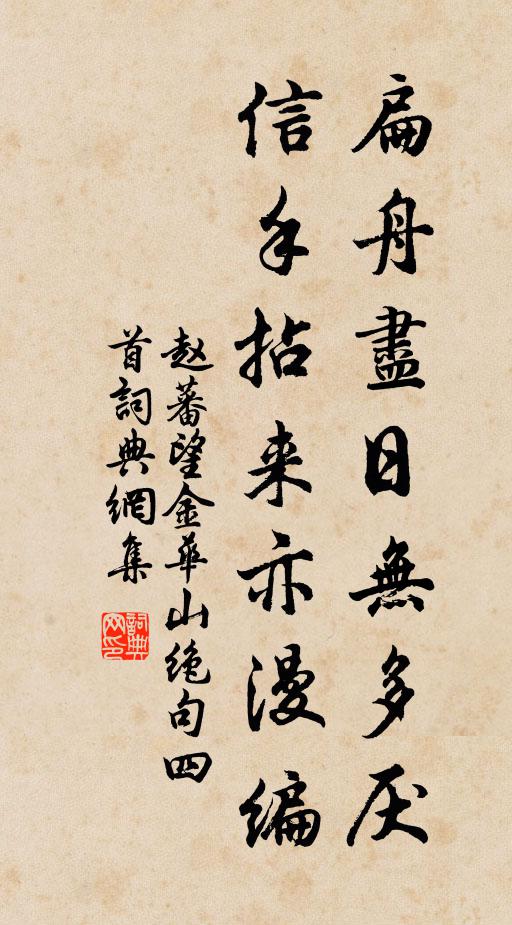 扁舟盡日無多厌
信手拈来亦漫编
赵蕃望金華山绝句四
首詞典網集
詞典网印